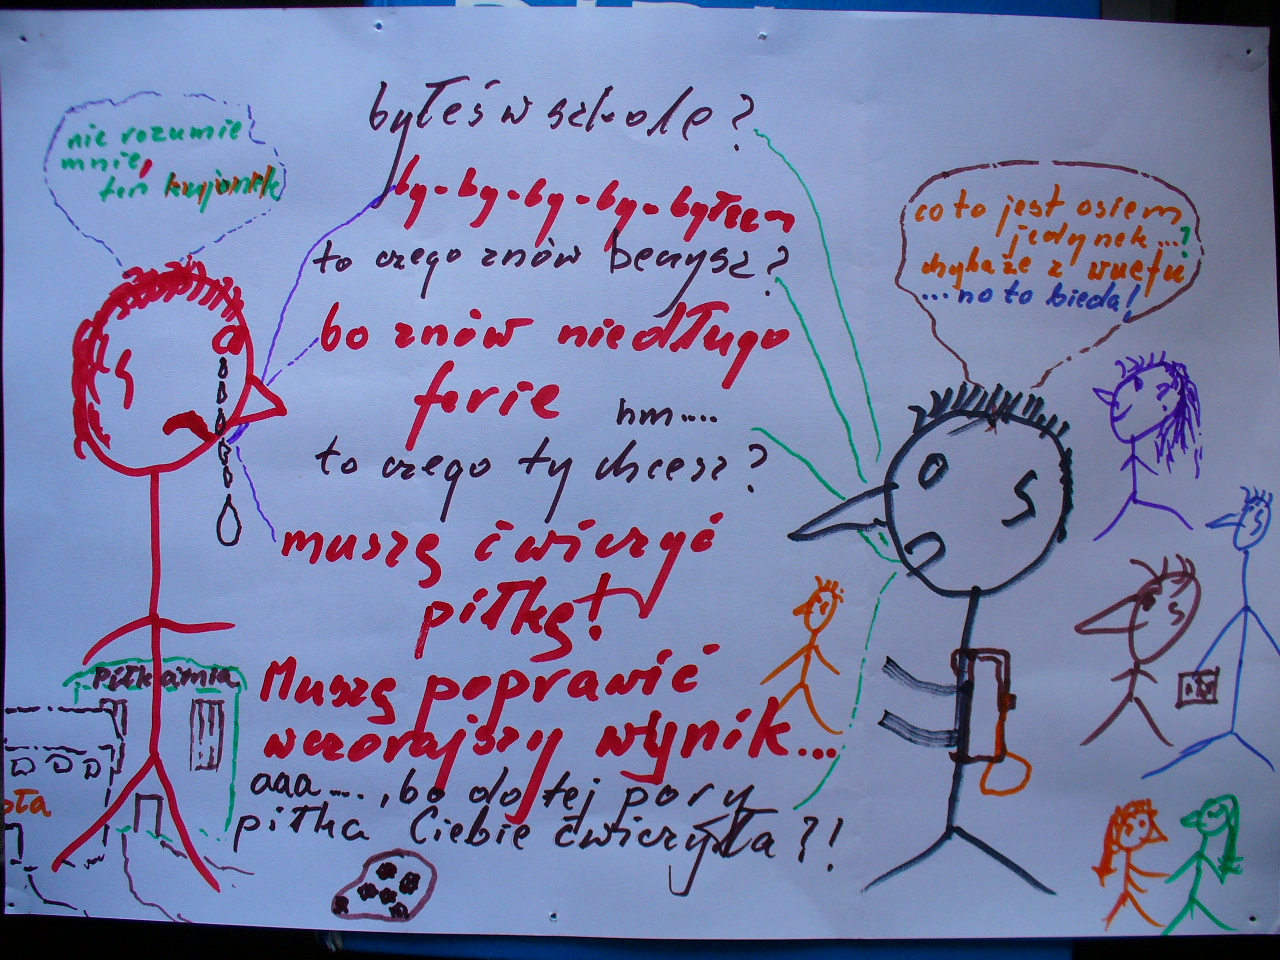 byłeś w szkole?
by-by-by-by-byłeem
to czego znów beczysz?
bo znów niedługo
ferie
hm....
to czego ty chcesz?
muszę ćwiczyć
piłkę!
Muszę poprawić
wczorajszy wynik...
aaa...., bo do tej pory
piłka Ciebie ćwiczyła?!
nie rozumie
mnie,
ten kujonek
co to jest osiem
jedynek...?
chyba że z wuefu
...no to bieda!
Piłkarnia
oła